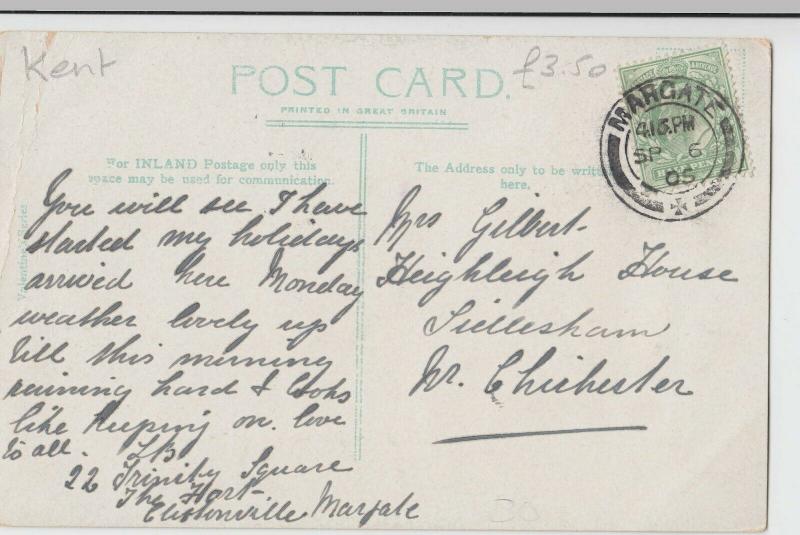 Kent
£3.50
POST CARD.
PRINTED IN GREAT BRITAIN
MARGATE
4.15 PM
SP 6
05
For INLAND Postage only this
space may be used for communication.
The Address only to be written
here.
Valentine's Series
You will see I have
started my holidays
arrived here Monday
weather lovely up
till this morning
raining hard & looks
like keeping on. love
to all. LB
22 Trinity Square
The Fort
Cliftonville Margate
Mrs Gilbert
Heighleigh House
Sidlesham
Nr. Chichester
30